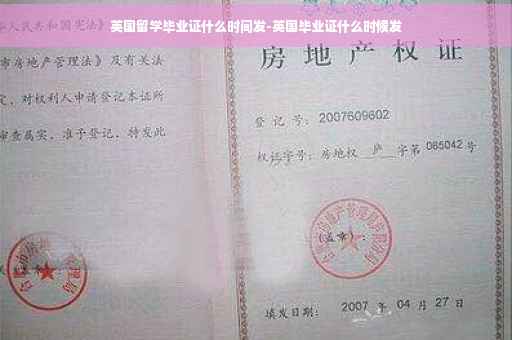 英国留学毕业证什么时间发-英国毕业证什么时候发
人民共和国宪法》
市房地产管理法》及有关法
定，对权利人申请登记本证所
审查属实，准予登记，特发此
房地产权证
登记号：2007609602
权证字号：房地权 庐 字第 065042 号
房地产管理局
(盖章)：
填发日期：2007 年 04 月 27 日